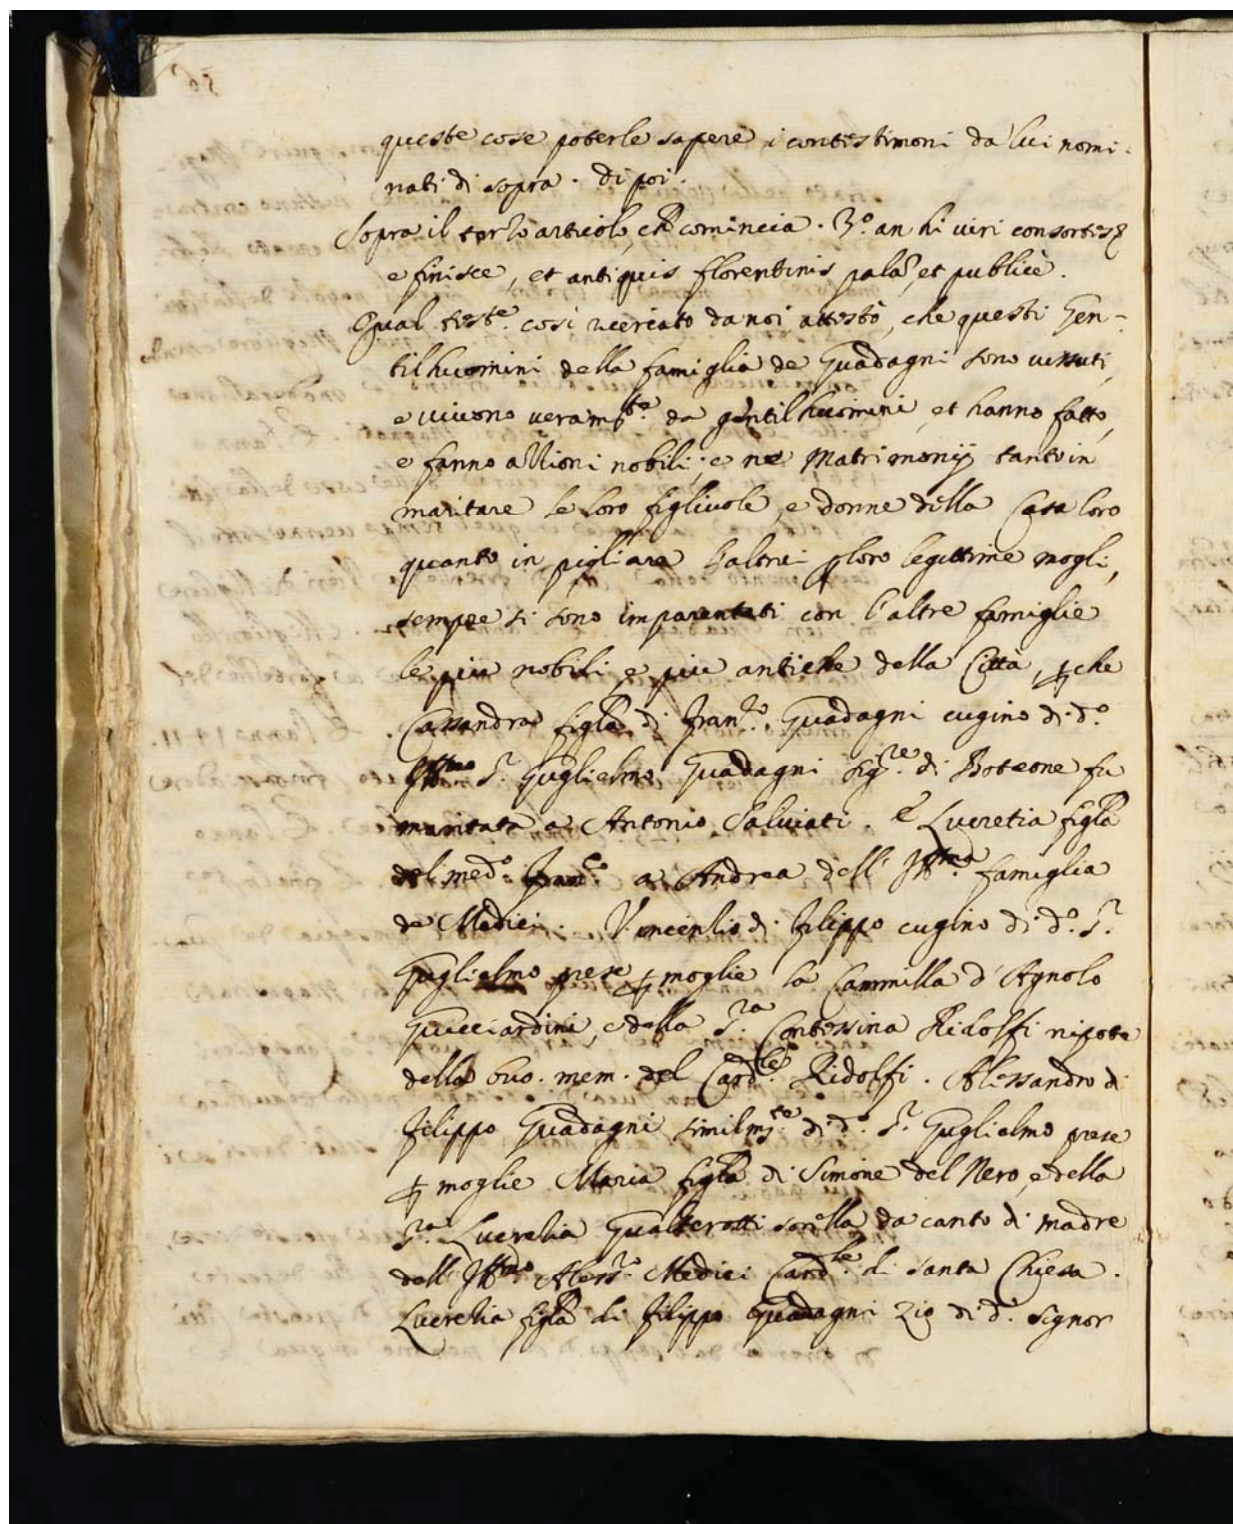 queste cose poterle sapere i contestimoni da lui nomi-
nati di sopra. di poi.
Sopra il terzo articolo, che comincia. 3.º an hi viri consortes
e finisce, et antiquis florentinis pala, et publicè.
Qual teste. così ricercato da noi, attestò, che questi Gen-
tilhuomini della famiglia de Guadagni sono vissuti,
e vivono veram.te da gentilhuomini, et hanno fatto,
e fanno azzioni nobili; e ne Matrimonij tanto in
maritare le loro figliuole, e donne della Casa loro
quanto in pigliare l'altrui p loro legittime mogli,
sempre si sono imparentati con l'altre famiglie
le piu nobili, e piu antiche della Città, p che
Cassandra figla di Fran.co Guadagni cugino di d.o
Ill.mo S.r Guglielmo Guadagni Sig.re di Boteone fu
maritata a Antonio Salviati. E Lucretia figla
del med.o Fran.co a Andrea dell' Ill.ma famiglia
de Medici. Vincenzio di Filippo cugino di d.o S.r
Guglielmo prese p moglie la Cammilla d'Agnolo
Guicciardini, e della S.ra Contessina Ridolfi nipote
della buo. mem. del Card.le Ridolfi. Alessandro di
Filippo Guadagni similm.te di d.o S.r Guglielmo prese
p moglie Maria figla di Simone del Nero, e della
S.ra Lucretia Gualterotti sorella da canto di madre
dell' Ill.mo Aless.o Medici Card.le di santa Chiesa.
Lucretia figla di Filippo Guadagni zio di d.o signor